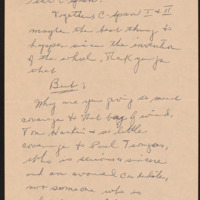 Dear C-Span:
Together C-Span I & II
maybe the best thing to
happen since the invention
of the wheel, Thank you for
that.
But:
Why are you giving so much
coverage to that bag of wind,
Tom Harkin & so little
coverage to Paul Tsongas,
who is serious, sincere
and an avowed Candidate,
not someone who is